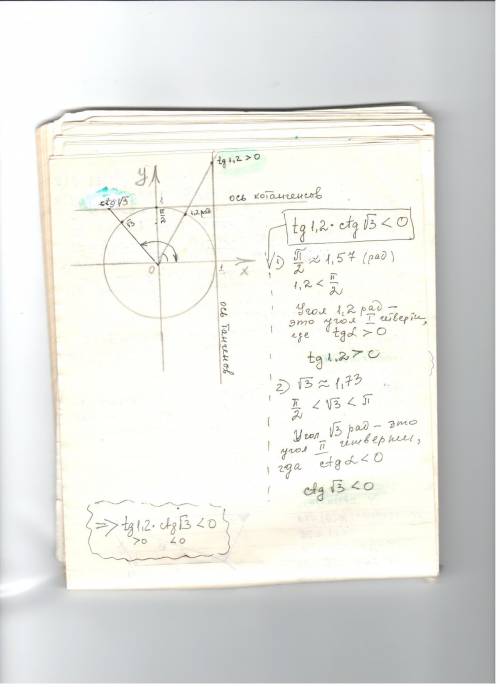 y
tg 1,2 > 0
ctg √3
1
ось котангенсов
√3
π/2
1,2 рад
0
1
x
ось тангенсов
tg 1,2 · ctg √3 < 0
1) π/2 ≈ 1,57 (рад)
1,2 < π/2
Угол 1,2 рад –
это угол I четверти,
где tg α > 0
tg 1,2 > 0
2) √3 ≈ 1,73
π/2 < √3 < π
Угол √3 рад – это
угол II четверти,
где ctg α < 0
ctg √3 < 0
=> tg 1,2 · ctg √3 < 0
>0 <0